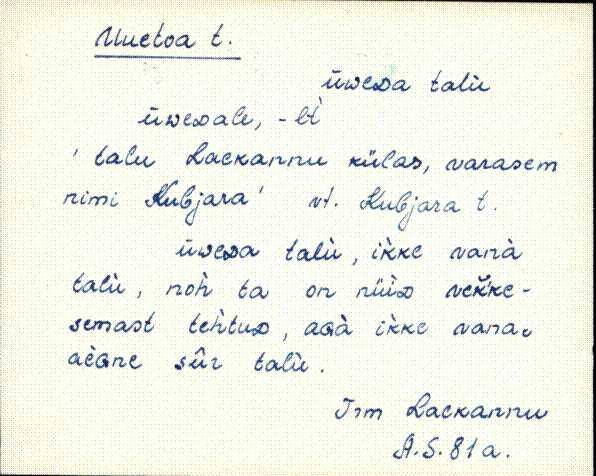 Uuetoa t.
ūweᴅa talù
ūweᴅale, -lt̀
' talu Laekannu külas, varasem
nimi Kubjara' vt. Kubjara t.
ūweᴅa talù, ikke vanà
talù, noh̀ ta on nüüᴅ vek̆ke-
semast teh̀tuᴅ, aɢà ikke vana-
aèɢne sûr talù.
Irm Laekannu
A.S. 81a.